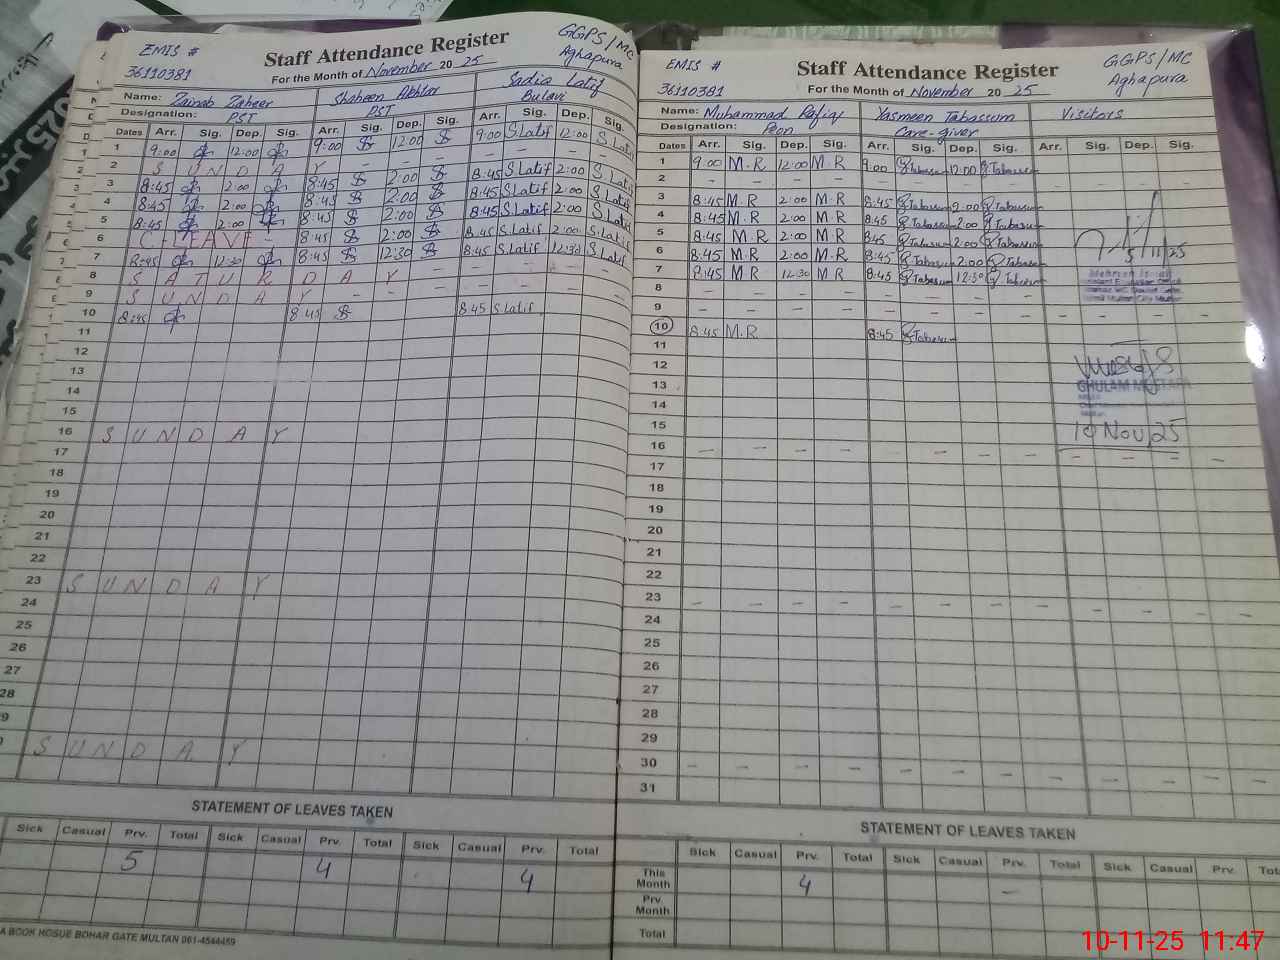 EMIS #
36110381
Staff Attendance Register
GGPS/MC
Aghapura
For the Month of November 20 25
Name: Zainab Zaheer Shaheen Akhtar Sadia Latif
Designation: PST PST
Dates Arr. Sig. Dep. Sig. Arr. Sig. Dep. Sig. Arr. Sig. Dep. Sig.
1 9:00 12:00 9:00 12:00 9:00 S Latif 12:00 S. Latif
2 S U N D A Y - -
3 8:45 2:00 8:45 2:00 8:45 S Latif 2:00 S. Latif
4 8:45 2:00 8:45 2:00 8:45 S Latif 2:00 S. Latif
5 8:45 2:00 8:45 2:00 8:45 S Latif 2:00 S. Latif
6 C-LEAVE - 8:45 2:00 8:45 S. Latif 2:00 S. Latif
7 8:45 12:30 8:45 12:30 8:45 S. Latif 12:30 S. Latif
8 S A T U R D A Y - - - -
9 S U N D A Y - - - - - -
10 8:45 8:45 8:45 S Latif
11
12
13
14
15
16 S U N D A Y
17
18
19
20
21
22
23 S U N D A Y
24
25
26
27
28
9
S U N D A Y
STATEMENT OF LEAVES TAKEN
Sick Casual Prv. Total Sick Casual Prv. Total Sick Casual Prv. Total
5 4 4
A BOOK HOSUE BOHAR GATE MULTAN 061-4544459
EMIS #
36110381
Staff Attendance Register
GGPS/MC
Aghapura
For the Month of November 20 25
Name: Muhammad Rafiq Yasmeen Tabassum Visitors
Designation: Peon Care-giver
Dates Arr. Sig. Dep. Sig. Arr. Sig. Dep. Sig. Arr. Sig. Dep. Sig.
1 9:00 M.R 12:00 M.R 9:00 Tabasum 12:00 Tabasum
2 - - - - - - - - - - - -
3 8:45 M.R 2:00 M.R 8:45 Tabasum 2:00 Tabasum
4 8:45 M.R 2:00 M.R 8:45 Tabasum 2:00 Tabasum
5 8:45 M.R 2:00 M.R 8:45 Tabasum 2:00 Tabasum
6 8:45 M.R 2:00 M.R 8:45 Tabasum 2:00 Tabasum
7 8:45 M.R 12:30 M.R 8:45 Tabasum 12:30 Tabasum
5/11/25
8 - - - - - - - -
9 - - - - - - - - - - - -
10 8:45 M.R 8:45 Tabasum
11
12
13
GHULAM MUSTAFA
14
15
10 Nov/25
16 - - - - - - - - - - - -
17
18
19
20
21
22
23 - - - - - - - - - - - -
24
25
26
27
28
29
30 - - - - - - - - - - - -
31
STATEMENT OF LEAVES TAKEN
Sick Casual Prv. Total Sick Casual Prv. Total Sick Casual Prv.
This Month 4 -
Prv. Month
Total
10-11-25 11:47